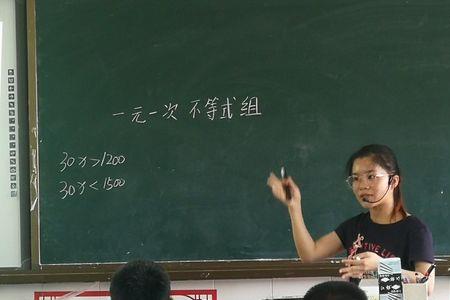 一元一次 不等式组
30x>1200
30x<1500